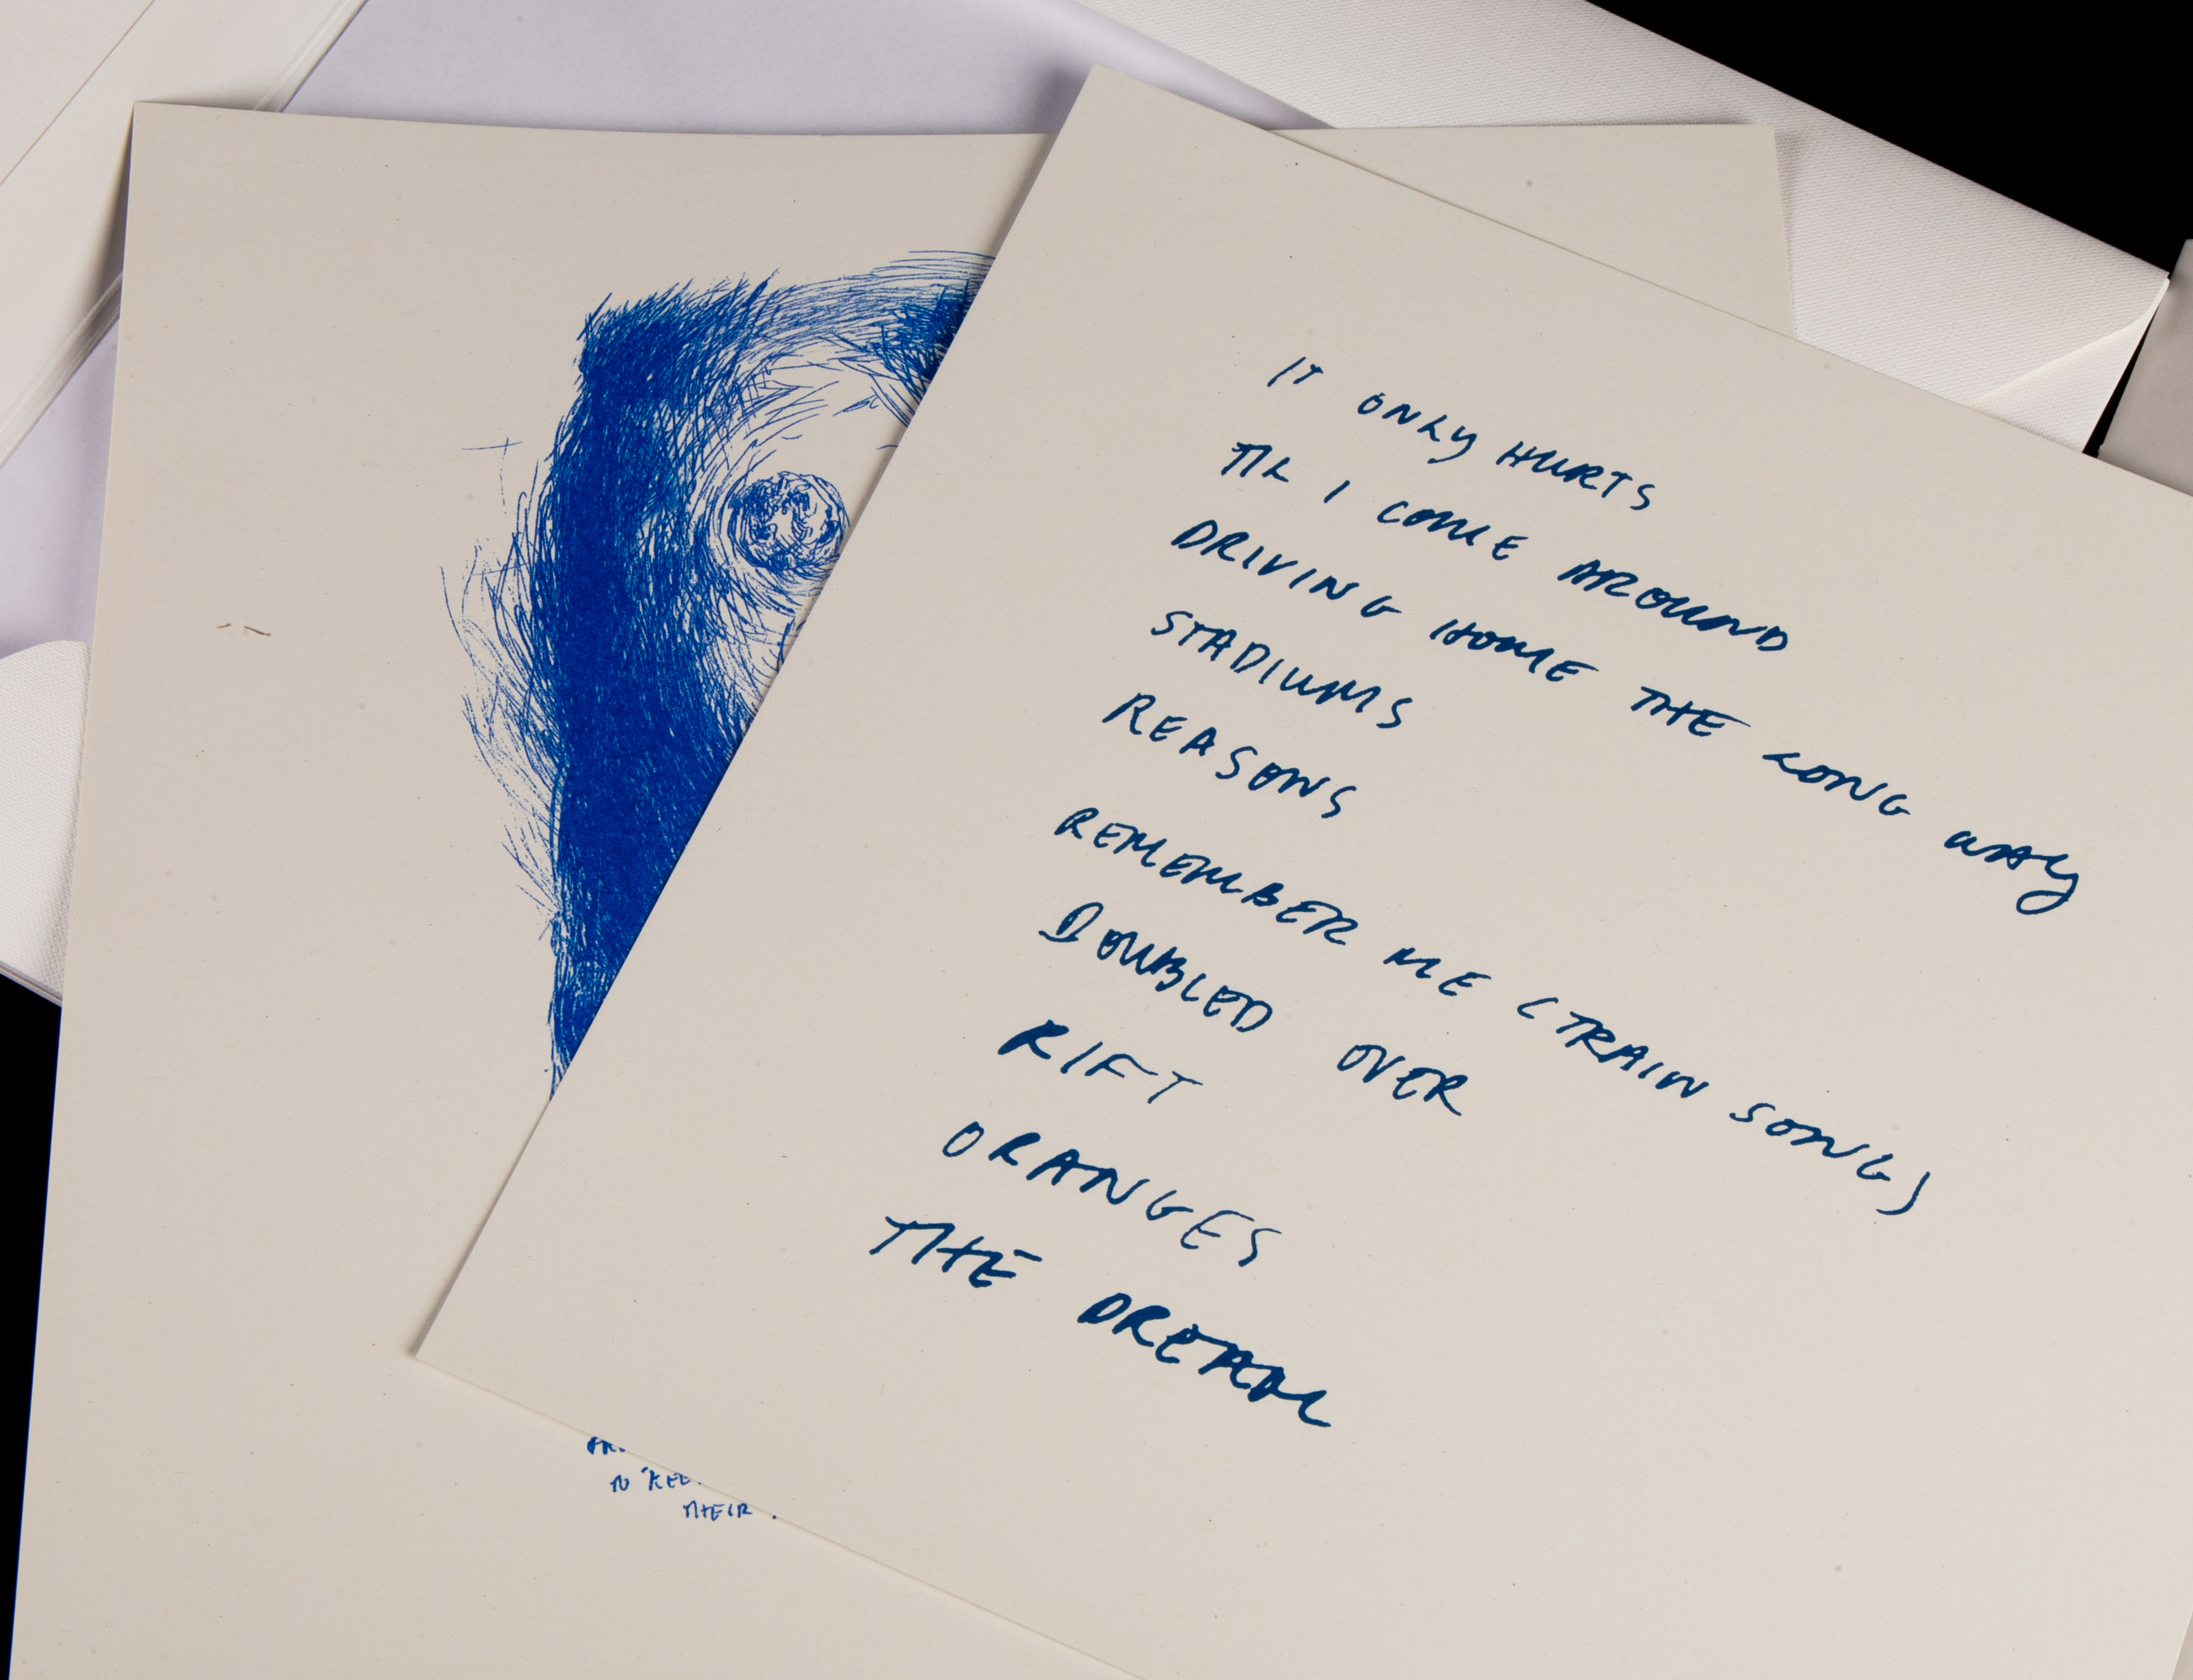 IT ONLY HURTS
TIL I COME AROUND
DRIVING HOME THE LONG WAY
STADIUMS
REASONS
REMEMBER ME (TRAIN SONG)
DOUBLED OVER
RIFT
ORANGES
THE DREAM
TO
THEIR